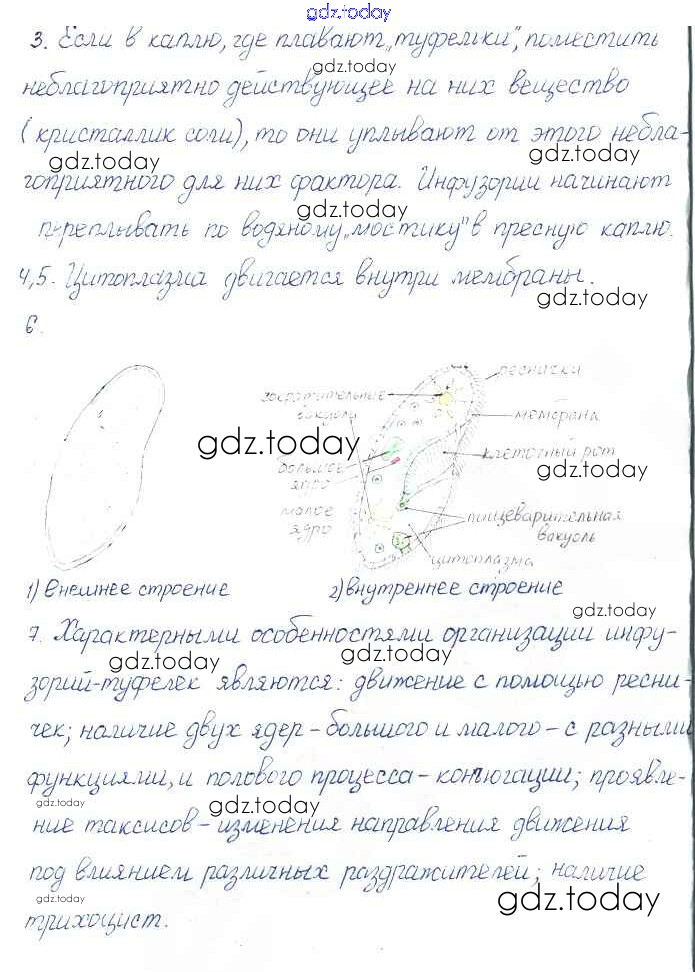 gdz.today
3. Если в каплю, где плавают „туфельки", поместить
gdz.today
неблагоприятно действующее на них вещество
(кристаллик соли), то они уплывают от этого небла-
gdz.today
gdz.today
гоприятного для них фактора. Инфузории начинают
gdz.today
переплывать по водяному „мостику" в пресную каплю.
4,5. Цитоплазма двигается внутри мембраны.
gdz.today
6.
реснички
сократительные
вакуоли
мембрана
gdz.today
клеточный рот
большое
ядро
gdz.today
малое
ядро
пищеварительная
вакуоль
цитоплазма
1) Внешнее строение
2) внутреннее строение
gdz.today
7. Характерными особенностями организации инфу-
gdz.today
gdz.today
зорий-туфелек являются: движение с помощью ресни-
чек; наличие двух ядер – большого и малого – с разными
функциями, и полового процесса – конъюгации; проявле-
gdz.today
gdz.today
ние таксисов – изменения направления движения
под влиянием различных раздражителей; наличие
gdz.today
gdz.today
трихоцист.